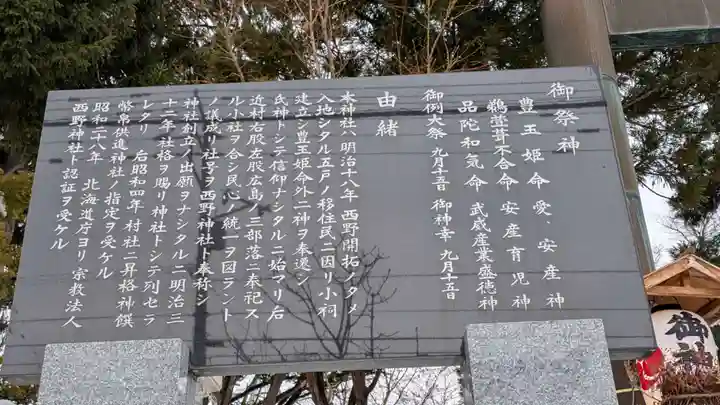 御祭神
豊玉姫命 愛、安産神
鵜葺草葺不合命 安産育児神
品陀和気命 武威産業盛徳神
御例大祭 九月十五日 御神幸 九月十五日
由緒
本神社ハ明治十八年西野開拓ノタメ
入地シタル五戸ノ移住民ニ因リ小祠
建立シ豊玉姫命外二神ヲ奉遷シ
氏神トシテ信仰ナシタルニ始マリ后
近村右股左股広島ノ三部落ニ奉祀ス
ル小社ヲ合シ民心ノ統一ヲ図ラント
ノ議成リ社号ヲ西野神社ト奉称シ
神社創立ノ出願ヲナシタルニ明治三
十二年社格ヲ賜リ神社トシテ列セラ
レタリ 后昭和四年村社ニ昇格神饌
幣帛供進神社ノ指定ヲ受ケル
昭和二八年 北海道庁ヨリ宗教法人
西野神社ト認証ヲ受ケル
御神